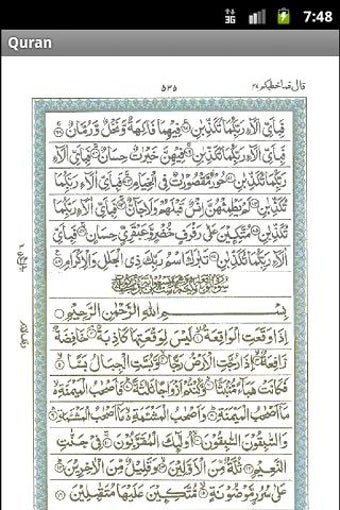 7:48
Quran
٥٣٥ قال فما خطبكم ٢٧
فَبِاَيِّ اٰلَآءِ رَبِّكُمَا تُكَذِّبٰنِ فِيْهِمَا فَاكِهَةٌ وَّنَخْلٌ وَّرُمَّانٌ
فَبِاَيِّ اٰلَآءِ رَبِّكُمَا تُكَذِّبٰنِ فِيْهِنَّ خَيْرٰتٌ حِسَانٌ فَبِاَيِّ اٰلَآءِ
رَبِّكُمَا تُكَذِّبٰنِ حُوْرٌ مَّقْصُوْرٰتٌ فِي الْخِيَامِ فَبِاَيِّ اٰلَآءِ رَبِّكُمَا
تُكَذِّبٰنِ لَمْ يَطْمِثْهُنَّ اِنْسٌ قَبْلَهُمْ وَلَا جَآنٌّ فَبِاَيِّ اٰلَآءِ رَبِّكُمَا
تُكَذِّبٰنِ مُتَّكِـِٕيْنَ عَلٰى رَفْرَفٍ خُضْرٍ وَّعَبْقَرِيٍّ حِسَانٍ فَبِاَيِّ
اٰلَآءِ رَبِّكُمَا تُكَذِّبٰنِ تَبٰرَكَ اسْمُ رَبِّكَ ذِي الْجَلٰلِ وَالْاِكْرَامِ
بِسْمِ اللّٰهِ الرَّحْمٰنِ الرَّحِيْمِ
اِذَا وَقَعَتِ الْوَاقِعَةُ لَيْسَ لِوَقْعَتِهَا كَاذِبَةٌ خَافِضَةٌ
رَّافِعَةٌ اِذَا رُجَّتِ الْاَرْضُ رَجًّا وَّبُسَّتِ الْجِبَالُ بَسًّا
فَكَانَتْ هَبَآءً مُّنْۢبَثًّا وَّكُنْتُمْ اَزْوَاجًا ثَلٰثَةً فَاَصْحٰبُ الْمَيْمَنَةِ
مَآ اَصْحٰبُ الْمَيْمَنَةِ وَاَصْحٰبُ الْمَشْـَٔمَةِ مَآ اَصْحٰبُ الْمَشْـَٔمَةِ
وَالسّٰبِقُوْنَ السّٰبِقُوْنَ اُولٰٓئِكَ الْمُقَرَّبُوْنَ فِيْ جَنّٰتِ
النَّعِيْمِ ثُلَّةٌ مِّنَ الْاَوَّلِيْنَ وَقَلِيْلٌ مِّنَ الْاٰخِرِيْنَ
عَلٰى سُرُرٍ مَّوْضُوْنَةٍ مُّتَّكِـِٕيْنَ عَلَيْهَا مُتَقٰبِلِيْنَ